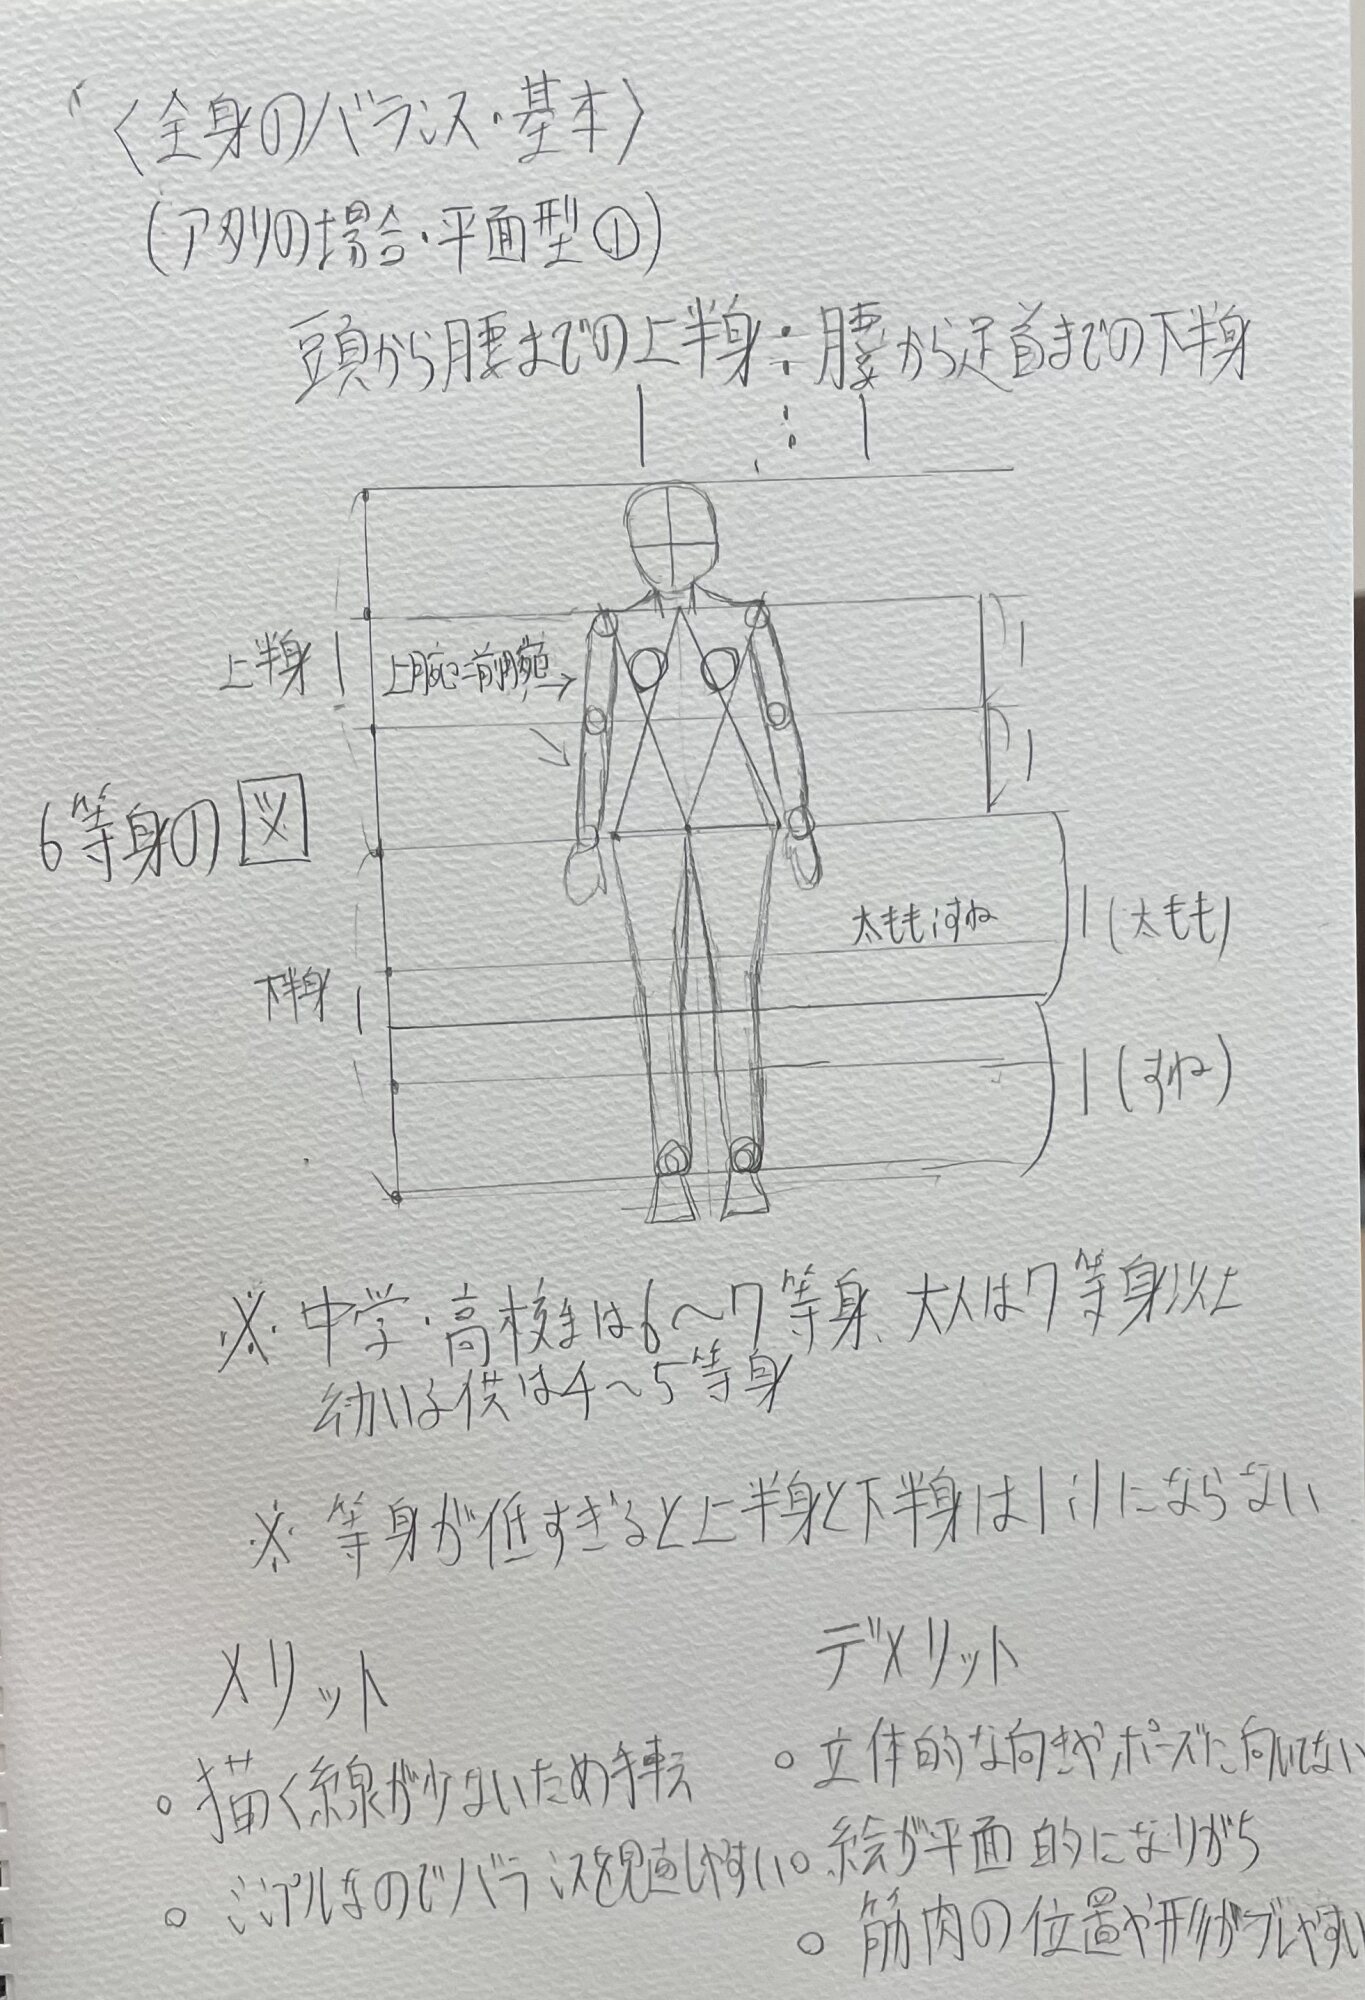 〈全身のバランス・基本〉
(アタリの場合・平面型①)
頭から腰までの上半身:腰から足首までの下半身
1 : 1
上半身 1
上腕:前腕→
1
1
6等身の図
太もも:すね
1(太もも)
下半身 1
1(すね)
※ 中学・高校生は6〜7等身、大人は7等身以上
幼い子供は4〜5等身
※ 等身が低すぎると上半身と下半身は1:1にならない
メリット
○ 描く線が少ないため手軽
○ シンプルなのでバランスを見直しやすい
デメリット
○ 立体的な向きやポーズに向いてない
○ 絵が平面的になりがち
○ 筋肉の位置や形がブレやすい